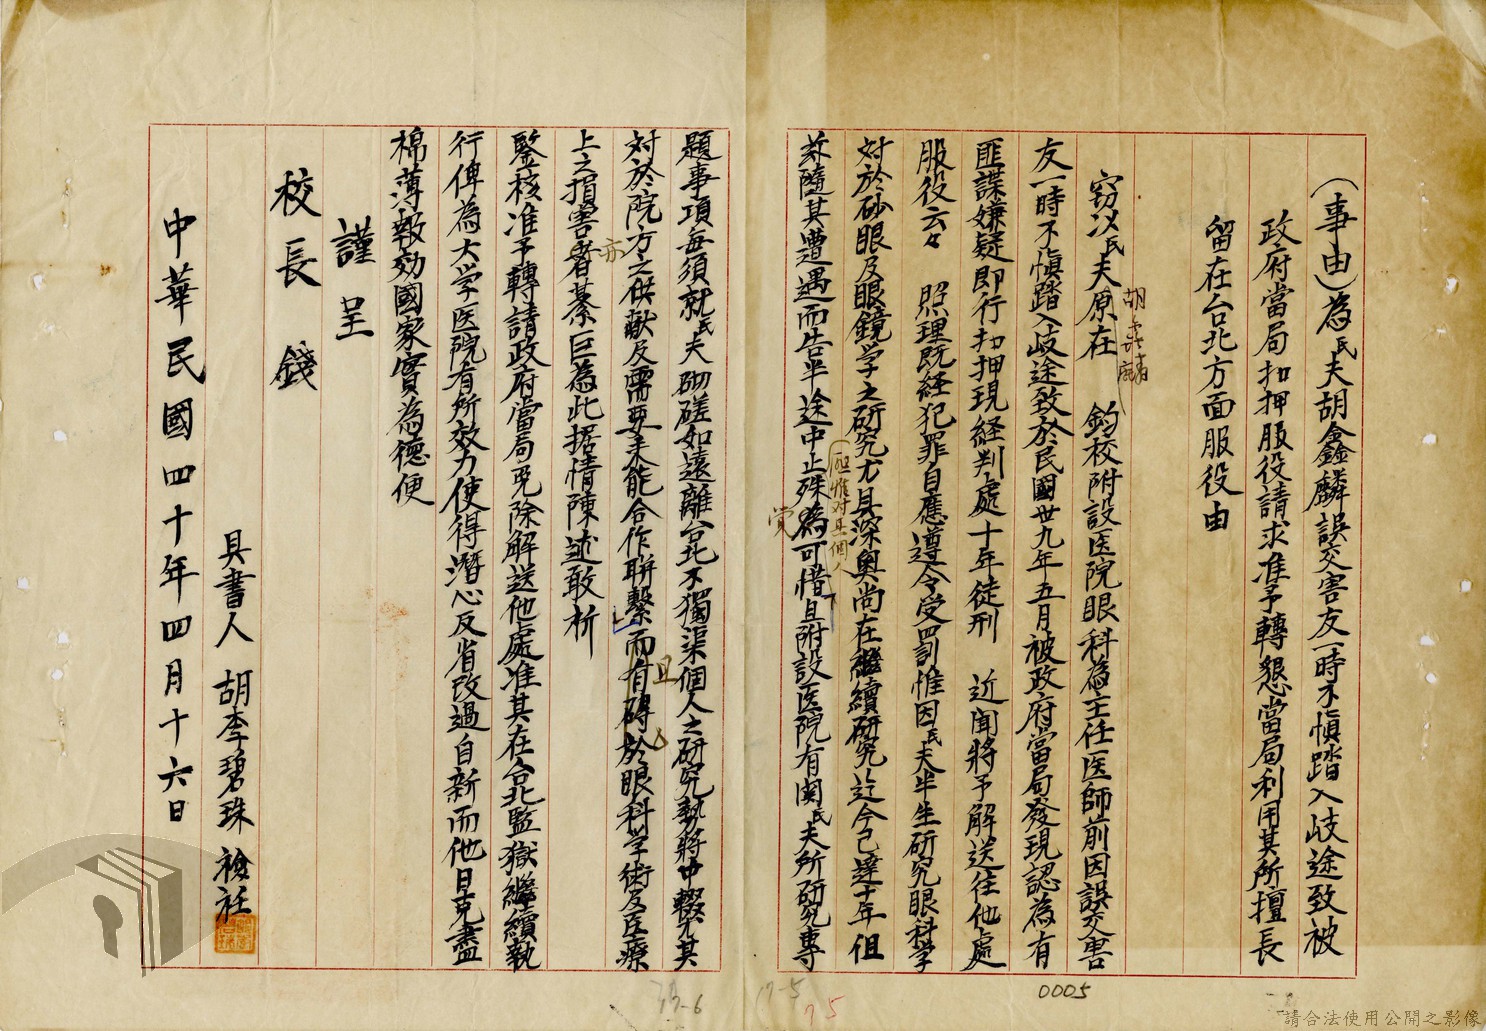 (事由)為民夫胡鑫麟誤交害友一時不慎踏入歧途致被
政府當局扣押服役請求准予轉懇當局利用其所擅長
留在台北方面服役由
胡鑫麟
竊以民夫原在 鈞校附設医院眼科為主任医師前因誤交害
友一時不慎踏入歧途致於民國卅九年五月被政府當局發現認為有
匪諜嫌疑即行扣押現経判處十年徒刑 近聞將予解送往他處
服役云々 照理既経犯罪自應遵令受罰惟因民夫半生研究眼科学
対於砂眼及眼鏡学之研究尤具深奥尚在繼續研究迄今已達十年但
(但惟对其個人
並隨其遭遇而告半途中止殊為可惜且附設医院有関民夫所研究專
覺
題事項每須就民夫砌磋如遠離台北不獨渠個人之研究勢將中輟尤其
対於院方之供献及需要未能合作聯繫而有碍於眼科学術及医療
且
上之損害者綦巨為此据情陳述敢祈
亦
鑒核准予轉請政府當局免除解送他處准其在台北監獄繼續執
行俾為大学医院有所效力使得潛心反省改過自新而他日克盡
棉薄報効國家實為德便
謹呈
校長 錢
具書人 胡李碧珠 檢社
中華民國四十年四月十六日
0005
17-5
75
17-6
請合法使用公開之影像